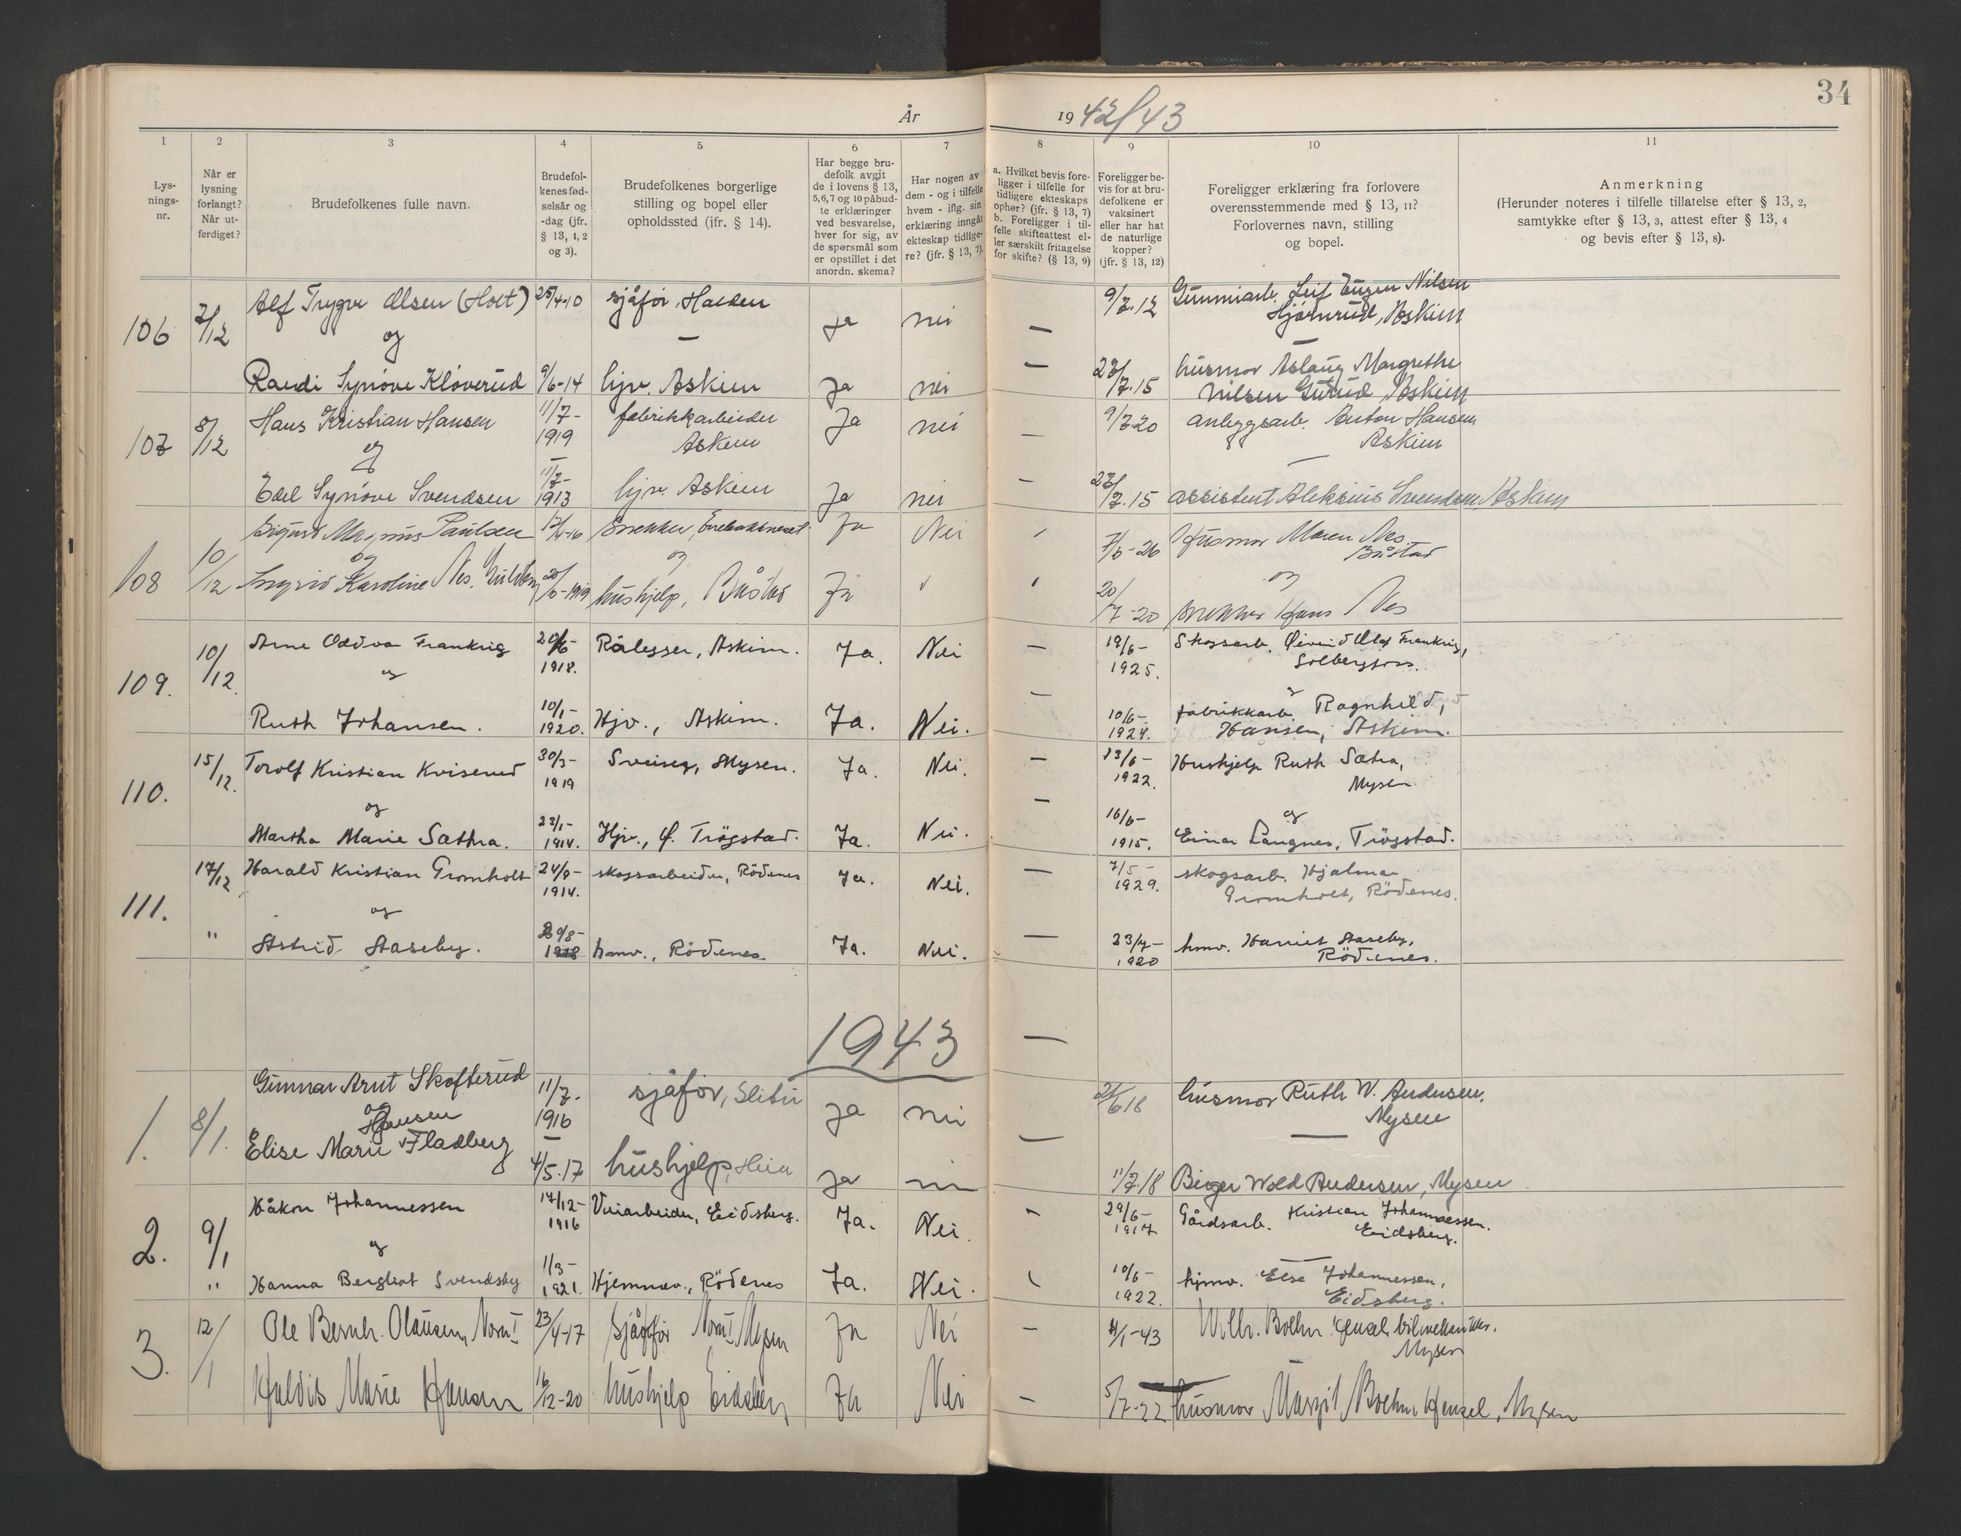 34
År 1942/43
1
2
3
4
5
6
7
8
9
10
11
Lys-
nings-
nr.
Når er
lysning
forlangt?
Når ut-
ferdiget?
Brudefolkenes fulle navn.
Brudefol-
kenes fød-
selsår og
-dag (jfr.
§ 13, 1, 2
og 3).
Brudefolkenes borgerlige
stilling og bopel eller
opholdssted (ifr. § 14).
Har begge bru-
defolk avgit
de i lovens § 13,
5,6,7 og 10 påbud-
te erklæringer
ved besvarelse,
hver for sig, av
de spørsmål som
er opstillet i det
anordn. skema?
Har nogen av
dem - og i tilfelle
hvem - iflg. sin
erklæring inngåt
ekteskap tidlige-
re? (jfr. § 13, 7).
a. Hvilket bevis fore-
ligger i tilfelle for
tidligere ekteskaps
ophør? (jfr. § 13, 7)
b. Foreligger i til-
felle skifteattest el-
ler særskilt fritagelse
for skifte? (§ 13, 9)
Foreligger be-
vis for at bru-
defolkene er
vaksinert
eller har hat
de naturlige
kopper?
(jfr. § 13, 12)
Foreligger erklæring fra forlovere
overensstemmende med § 13, 11?
Forlovernes navn, stilling
og bopel.
Anmerkning
(Herunder noteres i tilfelle tillatelse efter § 13, 2,
samtykke efter § 13, 3, attest efter § 13, 4
og bevis efter § 13, 8).
106 7/12 Alf Trygve Olsen (Holt) 25/4-10 sjåfør, Halden ja nei — 9/7.12 Gummiarb. Leif Eugen Nilsen
Hjørnrud, Askim
og —
Randi Synøve Kløverud 9/6-14 hjv. Askim ja nei — 23/7.15 husmor Aslaug Margrethe
Nilsen Gurud, Askim
107 8/12 Hans Kristian Hansen 11/7-1919 fabrikkarbeider
Askim Ja nei — 9/7-20 anleggsarb. Anton Hansen
Askim
og —
Edel Synøve Svendsen 11/7-1913 hjv. Askim ja nei — 23/7.15 assistent Aleksius Svendsen Askim
108 10/12 Sigurd Magnus Paulsen 17/4-16 snekker, Enebakkneset Ja Nei 7/6-26 Husmor Maren Nes
Båstad
og og og
Ingrid Karoline Nes, 20/6-1919 hushjelp, Båstad Ja " 20/7-20 snekker Hans Nes
109. 10/12. Arne Oddvar Frankrig 20/6-1918. Rørlegger, Askim. Ja. Nei — 19/6-1925. Skogsarb. Øivind Olaf Frankrig,
Solbergfoss.
og og
Ruth Johansen. 10/1-1920. Hjv., Askim. Ja. Nei. — 10/6-1924. fabrikkarb. Ragnhild
Hansen, Askim.
110. 15/12. Torolf Kristian Kviserud 30/3-1919 Sveiser, Mysen. Ja. Nei. — 23/6-1922. Hushjelp Ruth Sætra,
Mysen
og og
Martha Marie Sæthra. 23/1-1914. Hjv., Ø. Trøgstad. Ja. Nei. — 16/6-1915. Einar Langnes, Trøgstad.
111. 17/12 Harald Kristian Gromholt 24/9-1914. skogsarbeider, Rødenes Ja. Nei. — 7/5-1929. skogsarb. Hjalmar
Gromholt, Rødenes.
og
" Astrid Staseby. 1918 hmv., Rødenes. Ja. Nei. — 23/7-1920 hmv. Harriet Staseby,
Rødenes.
1943 —
1. 8/1. Gunnar Arnt Skofterud 11/7-1916 sjåfør, Slitu ja nei 618 husmor Ruth W. Andersen,
Mysen
og
Hansen
Elise Marie Fladberg 4/5.17 hushjelp, Heia ja nei — 11/7.18 Birger Wold Andersen, Mysen
2. 9/1 Håkon Johannessen 17/12-1916 Veiarbeider, Eidsberg. Ja. Nei. 29/6-1917 Gårdsarb. Kristian Johannessen.
Eidsberg.
og
" Hanna Bergliot Svendsby 11/3-1921. Hjemmev., Rødenes Ja. Nei. 10/6-1922. hjmv. Else Johannessen,
Eidsberg.
3. 12/1 Ole Bernh. Olausen, 23/4-17 Sjåfør Mysen Ja Nei 4/1-43 Wilh. Boehm Hensel bilmekaniker.
Mysen
Haldis Marie Hansen 16/12-20 hushjelp Eidsberg Ja Nei — 5/7-22 husmor Margit Boehm Hensel, Mysen